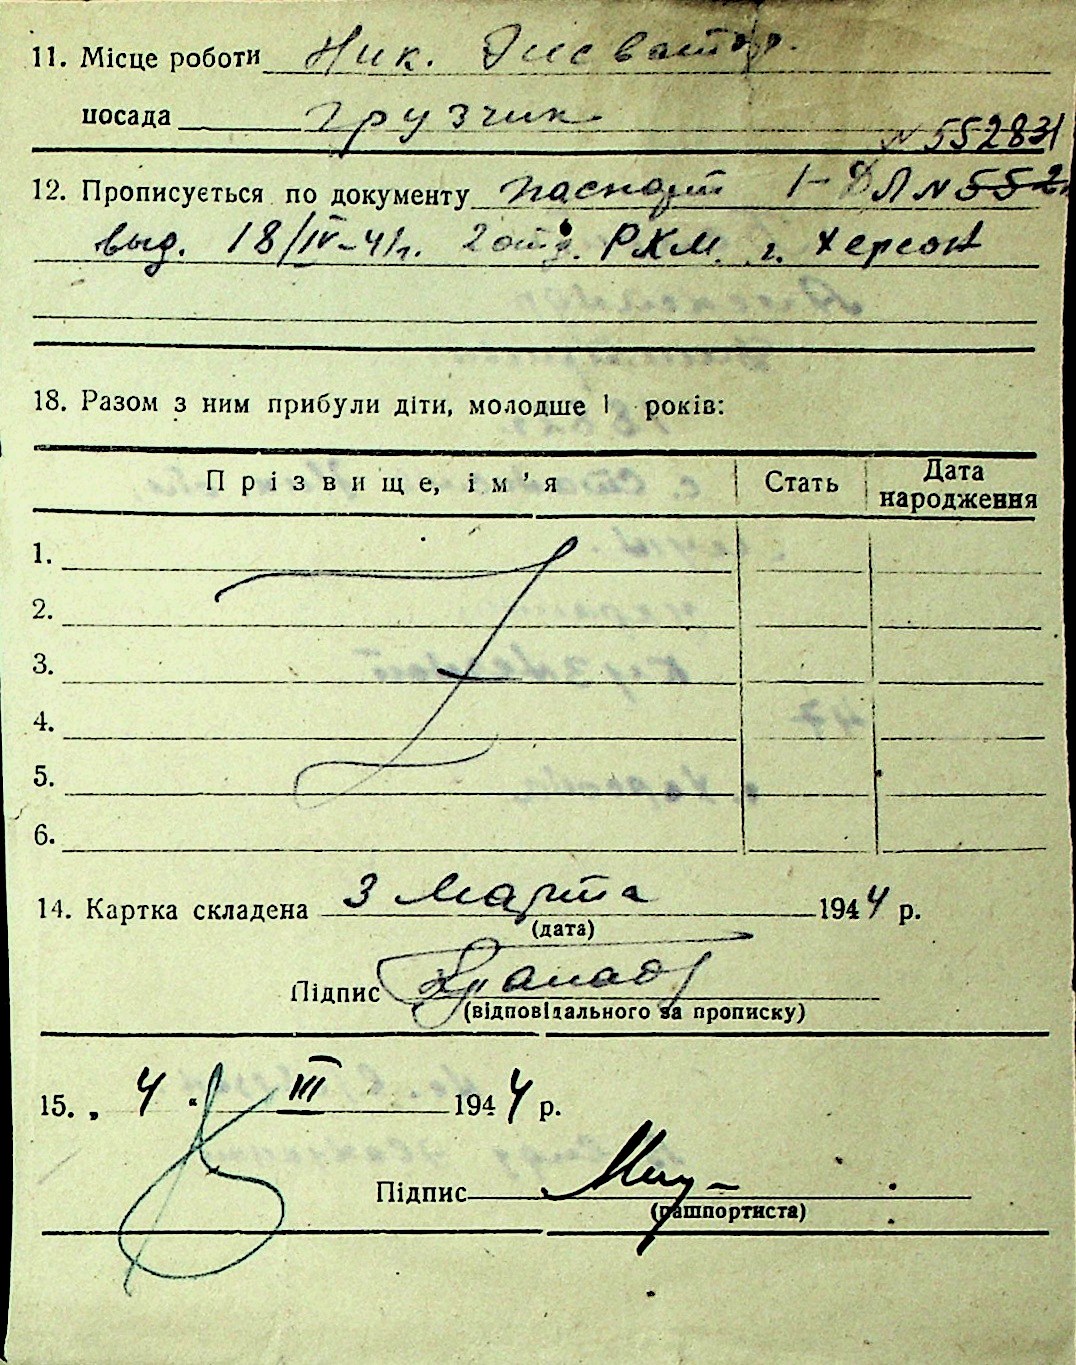 11. Місце роботи Ник.
посада грузчик
N 552831
12. Прописується по документу паспорт I-ДЛ N 552
выд. 18/IV-41г. 2 отд. РКМ. г. Херсон
18. Разом з ним прибули діти, молодше 1 років:
Прізвище, ім'я Стать Дата народження
1.
2.
3.
4.
5.
6.
14. Картка складена 3 Марта 1944 р.
(дата)
Підпис
(відповідального за прописку)
15. „ 4 “ III 1944 р.
Підпис
(пашпортиста)